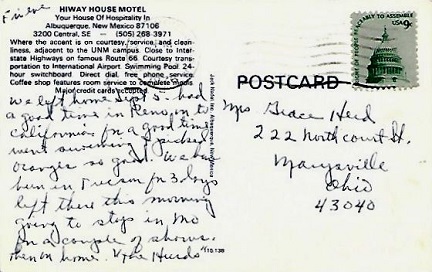 HIWAY HOUSE MOTEL
Your House Of Hospitality In
Albuquerque, New Mexico 87106
3200 Central, SE — (505) 268-3971
Where the accent is on courtesy, service, and clean-
liness, adjacent to the UNM campus. Close to Inter-
state Highways on famous Route 66. Courtesy trans-
portation to International Airport. Swimming Pool. 24-
hour switchboard. Direct dial, free phone service.
Coffee shop features room service to complete meals
Major credit cards accepted.
We left home Sept 5 - had
a good time in Reno, on to
California for a good time
went swimming & picked
oranges so good. We have
been in Tucson for 3 days
left there this morning
going to stop in Mo
for a couple of shows.
then on home.
110,138
POSTCARD
RIGHT OF PEOPLE PEACEABLY TO ASSEMBLE
USA 9c
Mrs Grace Heid
222 North court St.
Marysville
Ohio
43040